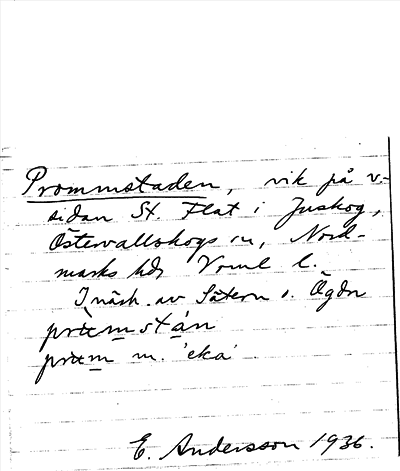 Prommstaden, vik på v.-
sidan St. Flat i Juskog,
Östervallskogs sn, Nord-
marks hd, Vrml l.
I näsh. av Sätern o. Ögdn
prùmstán
prum m. 'eka'
E. Andersson 1936.